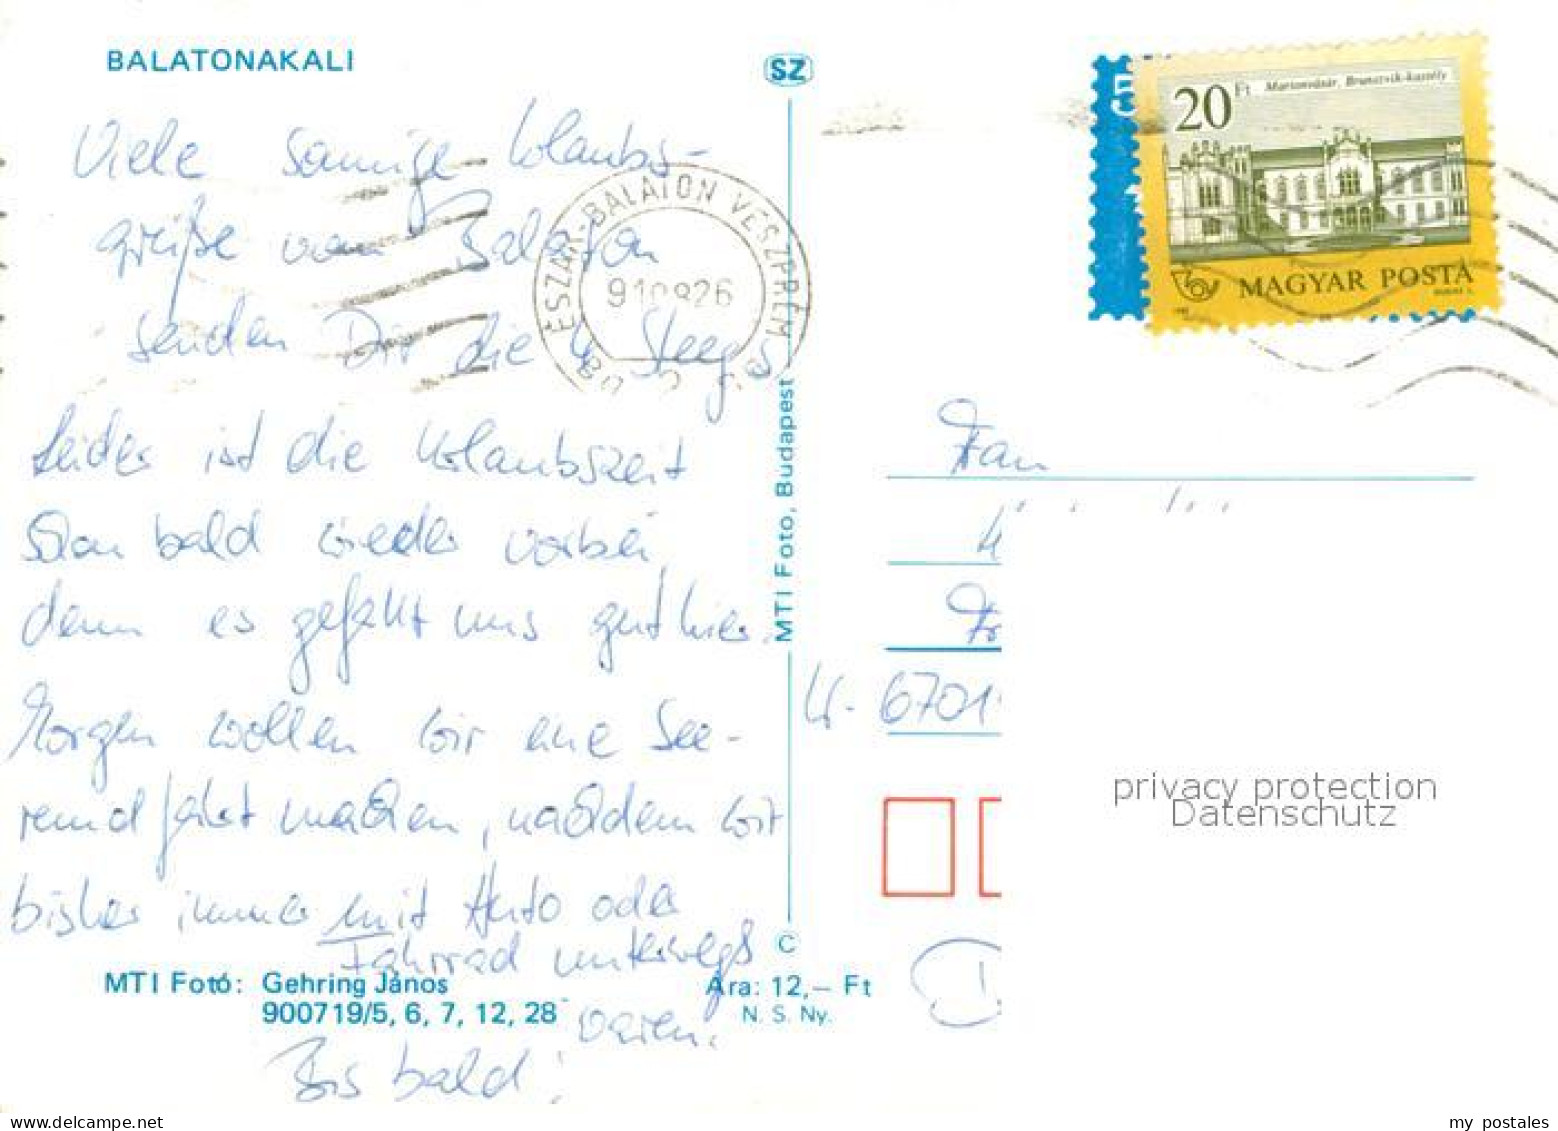 BALATONAKALI
SZ
Viele sonnige Urlaubs-
grüße vom Balaton
senden Dir die 4 Steegs
Leider ist die Urlaubszeit
schon bald wieder vorbei,
denn es gefällt uns gut hier.
Morgen wollen wir eine See-
rundfahrt machen, nachdem wir
bisher immer mit Auto oder
Fahrrad unterwegs
waren.
Bis bald!
MTI Fotó: Gehring János
900719/5, 6, 7, 12, 28
Ára: 12,– Ft
N. S. Ny.
MTI Foto, Budapest
C
ÉSZAK-BALATON VESZPRÉM
910826
5
20 Ft
Martonvásár, Brunszvik-kastély
MAGYAR POSTA
Frau
W- 6701
privacy protection
Datenschutz
my postales